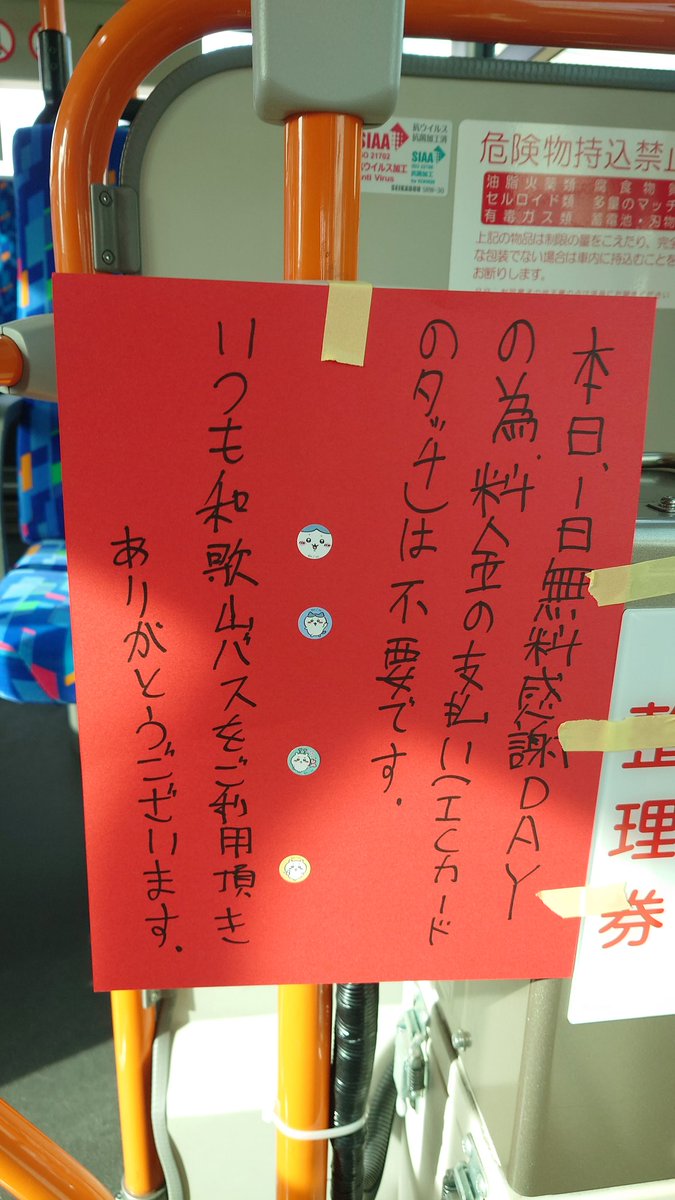 本日、1日無料感謝DAY
の為、料金の支払い(ICカード
のタッチ)は不要です。
いつも和歌山バスをご利用頂き
ありがとうございます。
危険物持込禁止
油脂火薬類 腐食物質
セルロイド類 多量のマッチ
有毒ガス類 蓄電池・刃物
上記の物品は制限の量をこえたり、完全
な包装でない場合は車内に持込むことを
お断りします。
抗ウイルス
抗菌加工済
SIAA
ISO 21702
抗ウイルス加工
Anti Virus
SIAA
抗菌加工
整理券